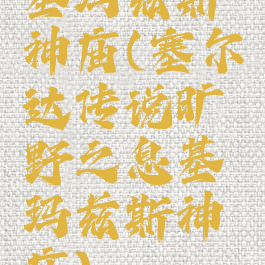 基玛兹斯
神庙(塞尔
达传说旷
野之息基
玛兹斯神
庙)